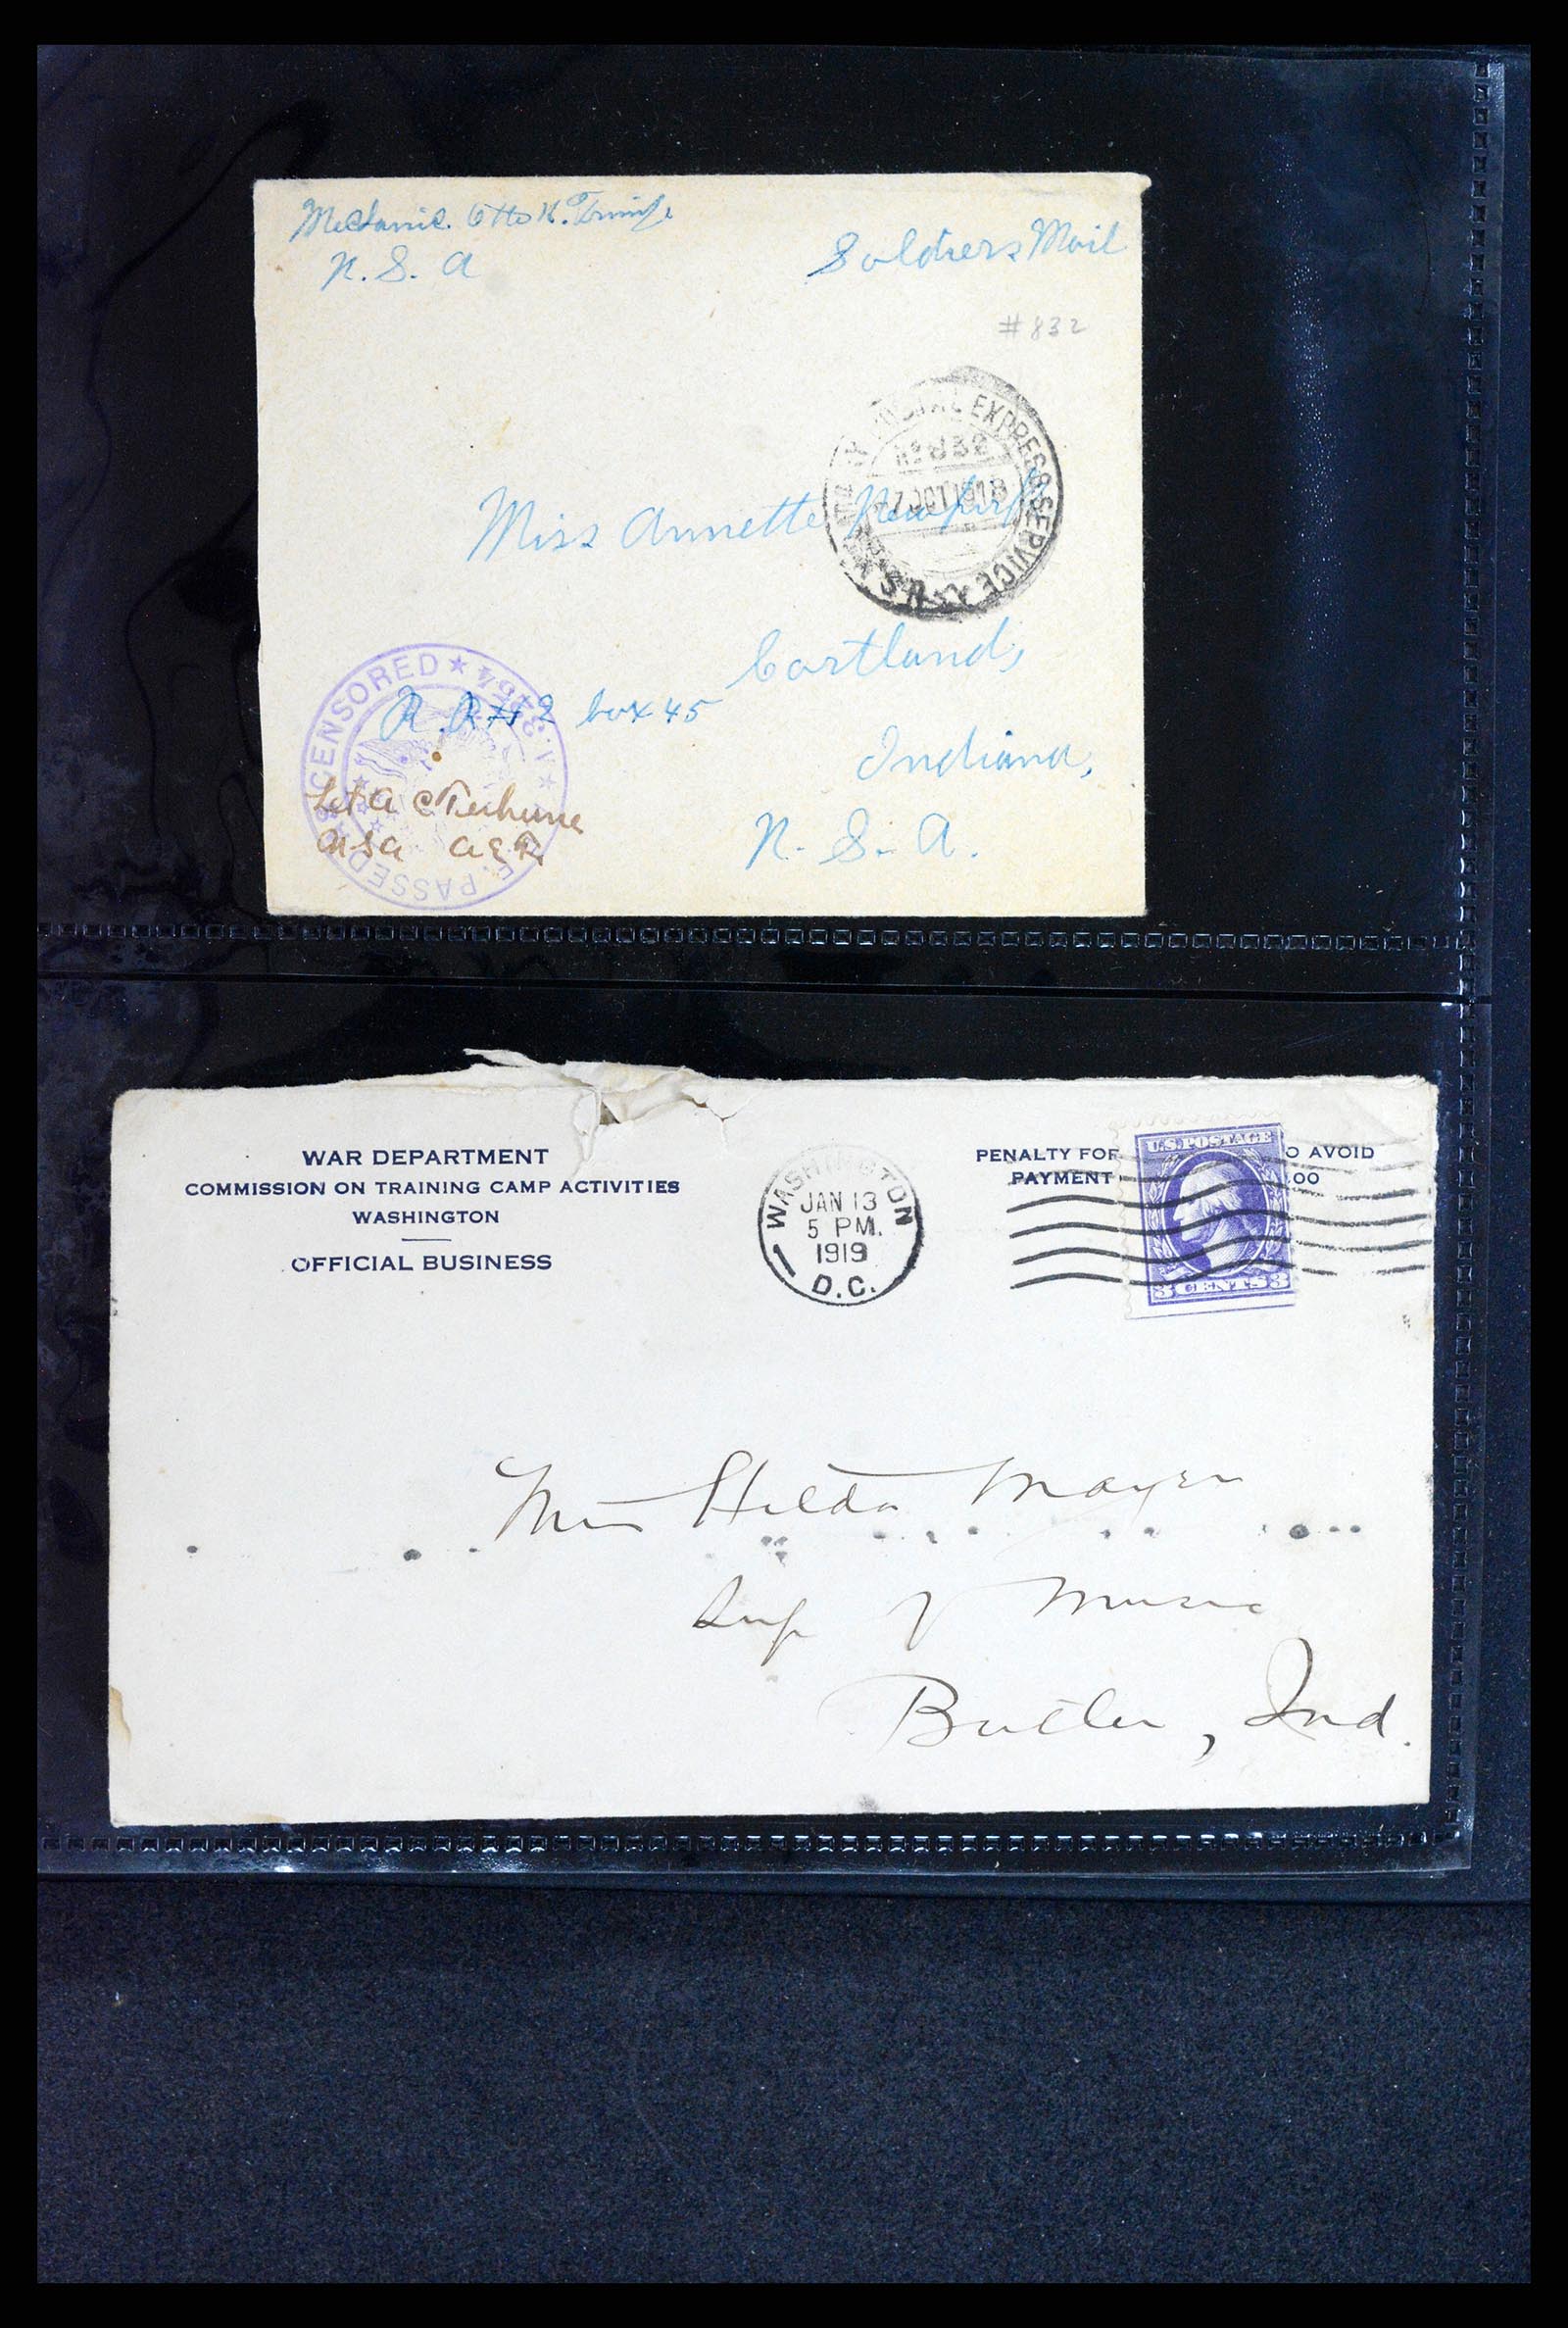 Mechanic. Otto K.
N. S. A
Soldiers Mail
#832
POSTAL EXPRESS SERVICE
No 832
OCT 1918
Miss Annette
Cortland,
R. R # 2 box 45
Indiana,
N. S. A.
A.E. PASSED AS CENSORED
A.
USA
WAR DEPARTMENT
COMMISSION ON TRAINING CAMP ACTIVITIES
WASHINGTON
OFFICIAL BUSINESS
WASHINGTON
JAN 13
5 PM.
1919
D.C.
PENALTY FOR O AVOID
PAYMENT .00
U.S. POSTAGE
3 CENTS 3
Miss Hilda Mayer
Sup of Music
Butler, Ind.